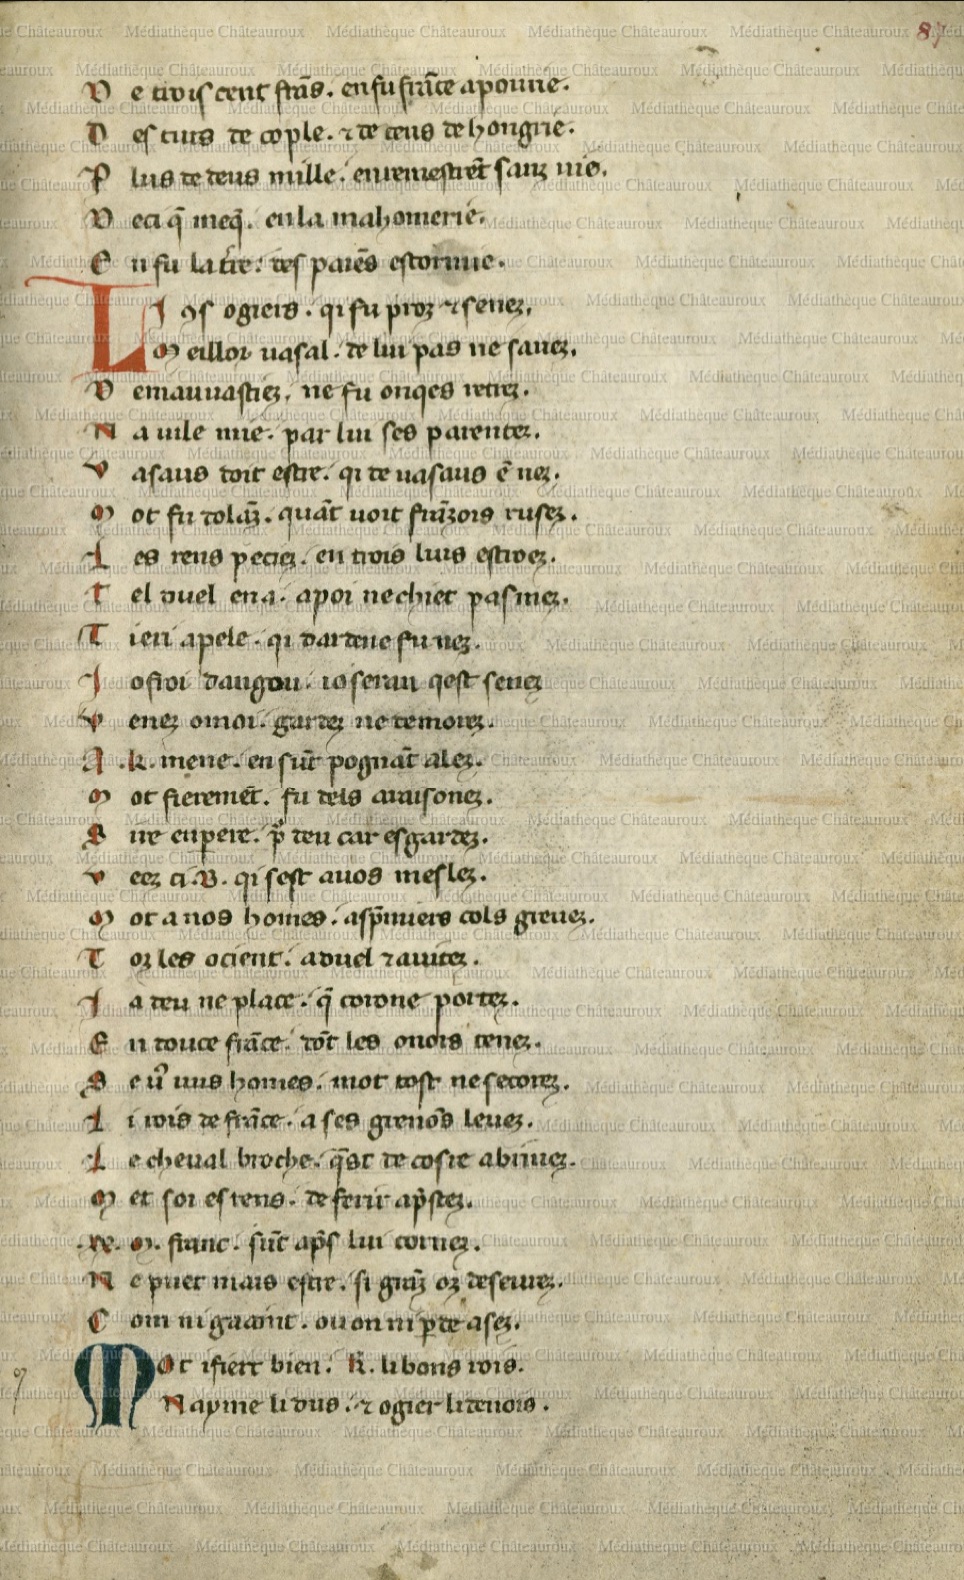 87
D e trois cent frãs. en fu frãce aponue.
D es turs de cople. ⁊ de ceus de hongrie.
P lus de deus mille. en remestrẽt sanz uie.
D eci q̃ meq̃. en la mahomerie.
E n fu la t̃re. des paiẽs estormie.
L I ꝯs ogiers. qi fu proz ⁊ senez.
M eillor uasal. de lui pas ne sauez.
D emauuastiez. ne fu onqes retez.
N a uile mie. par lui ses parentez.
V asaus doit estre. qi de uasaus ẽ nez.
M ot fu dolãz. quãt uoit frãzois rusez.
L es rens peciez. en trois lius estroez.
T el duel en a. a poi ne chiet pasmez.
T ieri apele. qi dardene fu nez.
J ofroi daugou. ioserau qest senez
V enez o moi. gardez ne demorez.
A .k. mene. en sũt pognãt alez.
M ot fieremẽt. fu dels araisonez.
S ire enpere. p̃ deu car esgardez.
V eez ci .B. qi sest a uos meslez.
M ot a nos homes. a sp̃miers cols greuez.
T oz les ocient. a duel ⁊ a uiltez.
J a deu ne place. q̃ corone portez.
E n douce frãce. dõt les onors tenez.
S e ur̃ uus homes. mot tost ne secorez.
L i rois de frãce. a ses grenõs leuez.
L e cheual broche. q̃st de coste abriuez.
M et soi es rens. de ferir ap̃stez.
.xx. M. franc. sũt ap̃s lui tornez.
N e puet mais estre. si grãz oz deseurez.
C om ni gaaint. ou on ni p̱de asez.
M Ot i fiert bien. K. li bons rois.
N ayme li dus. ⁊ ogier li denois.